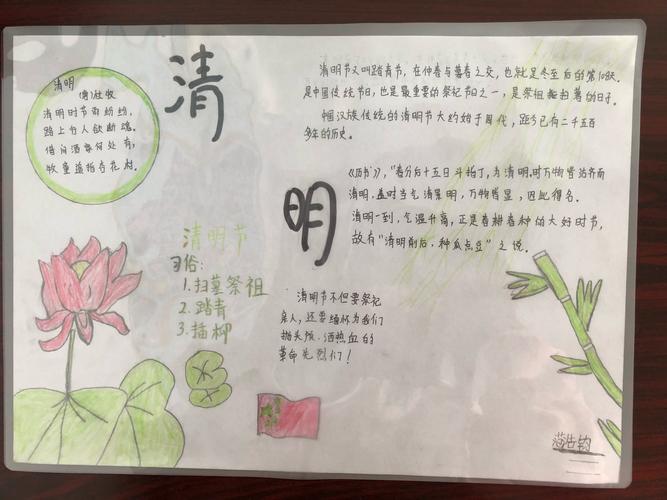 清
明
清明
(唐)杜牧
清明时节雨纷纷,
路上行人欲断魂。
借问酒家何处有,
牧童遥指杏花村。
清明节又叫踏青节,在仲春与暮春之交,也就是冬至后的第108天。
是中国传统节日,也是最重要的祭祀节日之一,是祭祖和扫墓的日子。
中国汉族传统的清明节大约始于周代,距今已有二千五百
多年的历史。
《历书》:"春分后十五日斗指丁,为清明,时万物皆洁齐而
清明,盖时当气清景明,万物皆显,因此得名。
清明一到,气温升高,正是春耕春种的大好时节,
故有"清明前后,种瓜点豆"之说。
清明节
习俗:
1.扫墓祭祖
2.踏青
3.插柳
清明节不但要祭祀
亲人,还要缅怀为我们
抛头颅、洒热血的
革命先烈们!